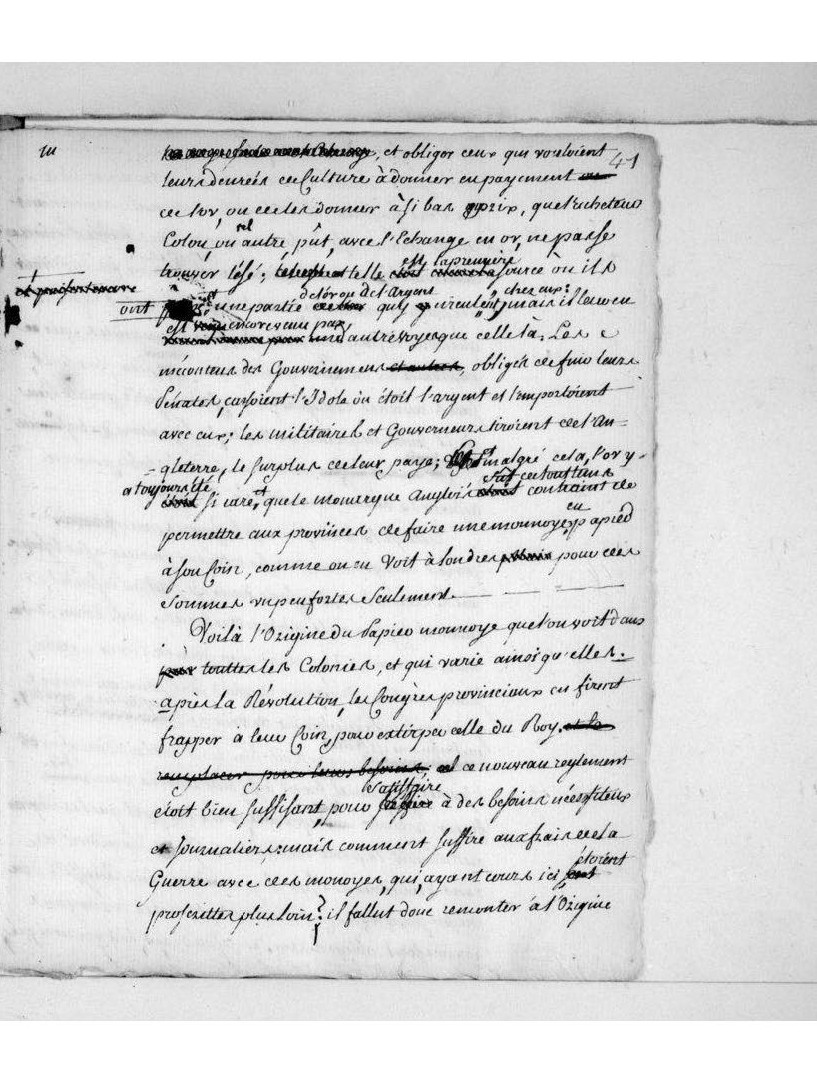 41
, et obliger ceux qui vouloient
leurs denrées de Culture à donner en payement
de l'or, ou de les donner à si bas prix, que l'acheteur
Colon, ou tel autre, pût, avec l'Echange en or, ne pas se
trouver lésé; telle est la premiere source où ils
ont une partie de l'or ou de l'argent qui circulent chez eux; mais il leur en
est encore venu par autre voye que celle là. Les
mécontens des Gouvernemens et autres, obligés de fuir leurs
Pénates, cassoient l'Idole où étoit l'argent et l'emportoient
avec eux; les militaires et Gouverneurs tiroient de l'An=
=gleterre, le surplus de leur paye; malgré cela, l'or y
a toujours été si rare, que le monarque Anglois fût de tout tems contraint de
permettre aux provinces de faire une monnoye en papier
à son Coin, comme on en voit à Londres pour des
sommes un peu fortes seulement.
Voilà l'Origine du Papier monnoye que l'on voit dans
pour touttes les Colonies, et qui varie ainsi qu'elles.
après la Révolution, les Congrès provinciaux en firent
frapper à leur Coin, pour extirper celle du Roy. et la
remplacer pour leurs besoins; ce nouveau reglement
étoit bien suffisant, pour satisfaire à des besoins nécessiteux
et journaliers; mais comment suffire aux frais de la
Guerre avec des monoyes, qui, ayant cours ici, étoient
proscrittes plus loin? il fallut donc remonter à l'Origine